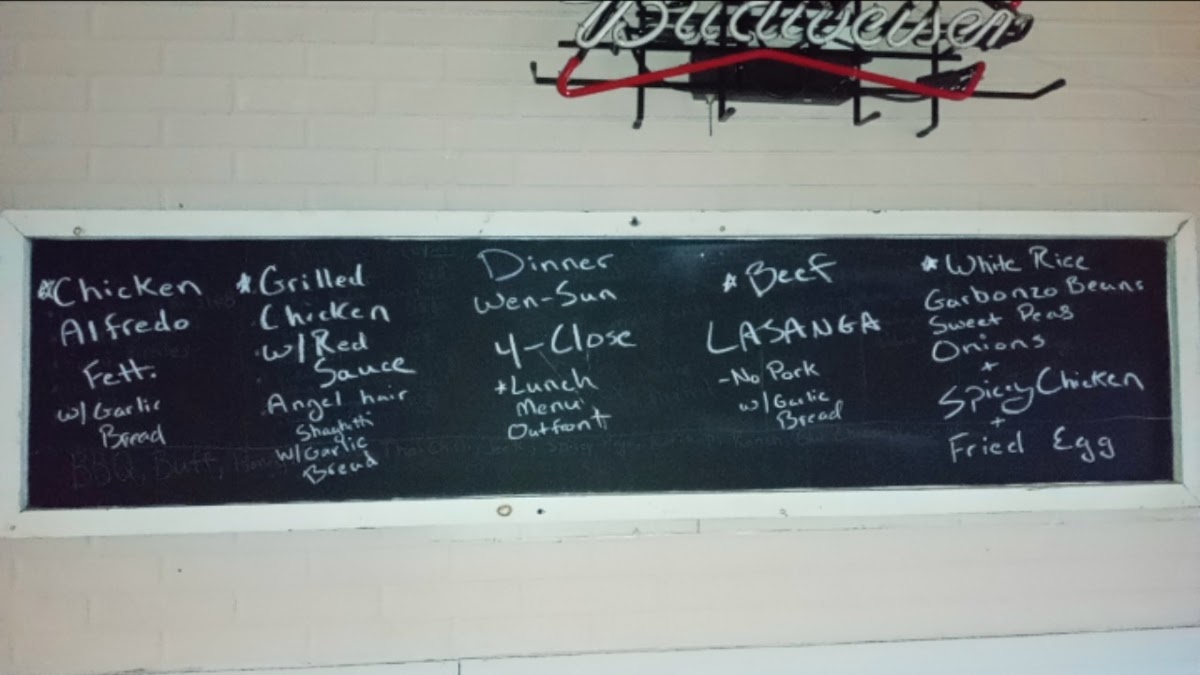 Budweiser
*Chicken
Alfredo
Fett.
w/Garlic
Bread
*Grilled
Chicken
w/Red
Sauce
Angel hair
w/Garlic
Bread
Dinner
Wen-Sun
4-Close
*Lunch
Menu
Outfront
*Beef
LASANGA
-No Pork
w/Garlic
Bread
*White Rice
Garbonzo Beans
Sweet Peas
Onions
+
Spicy Chicken
+
Fried Egg
BBQ, Buff,